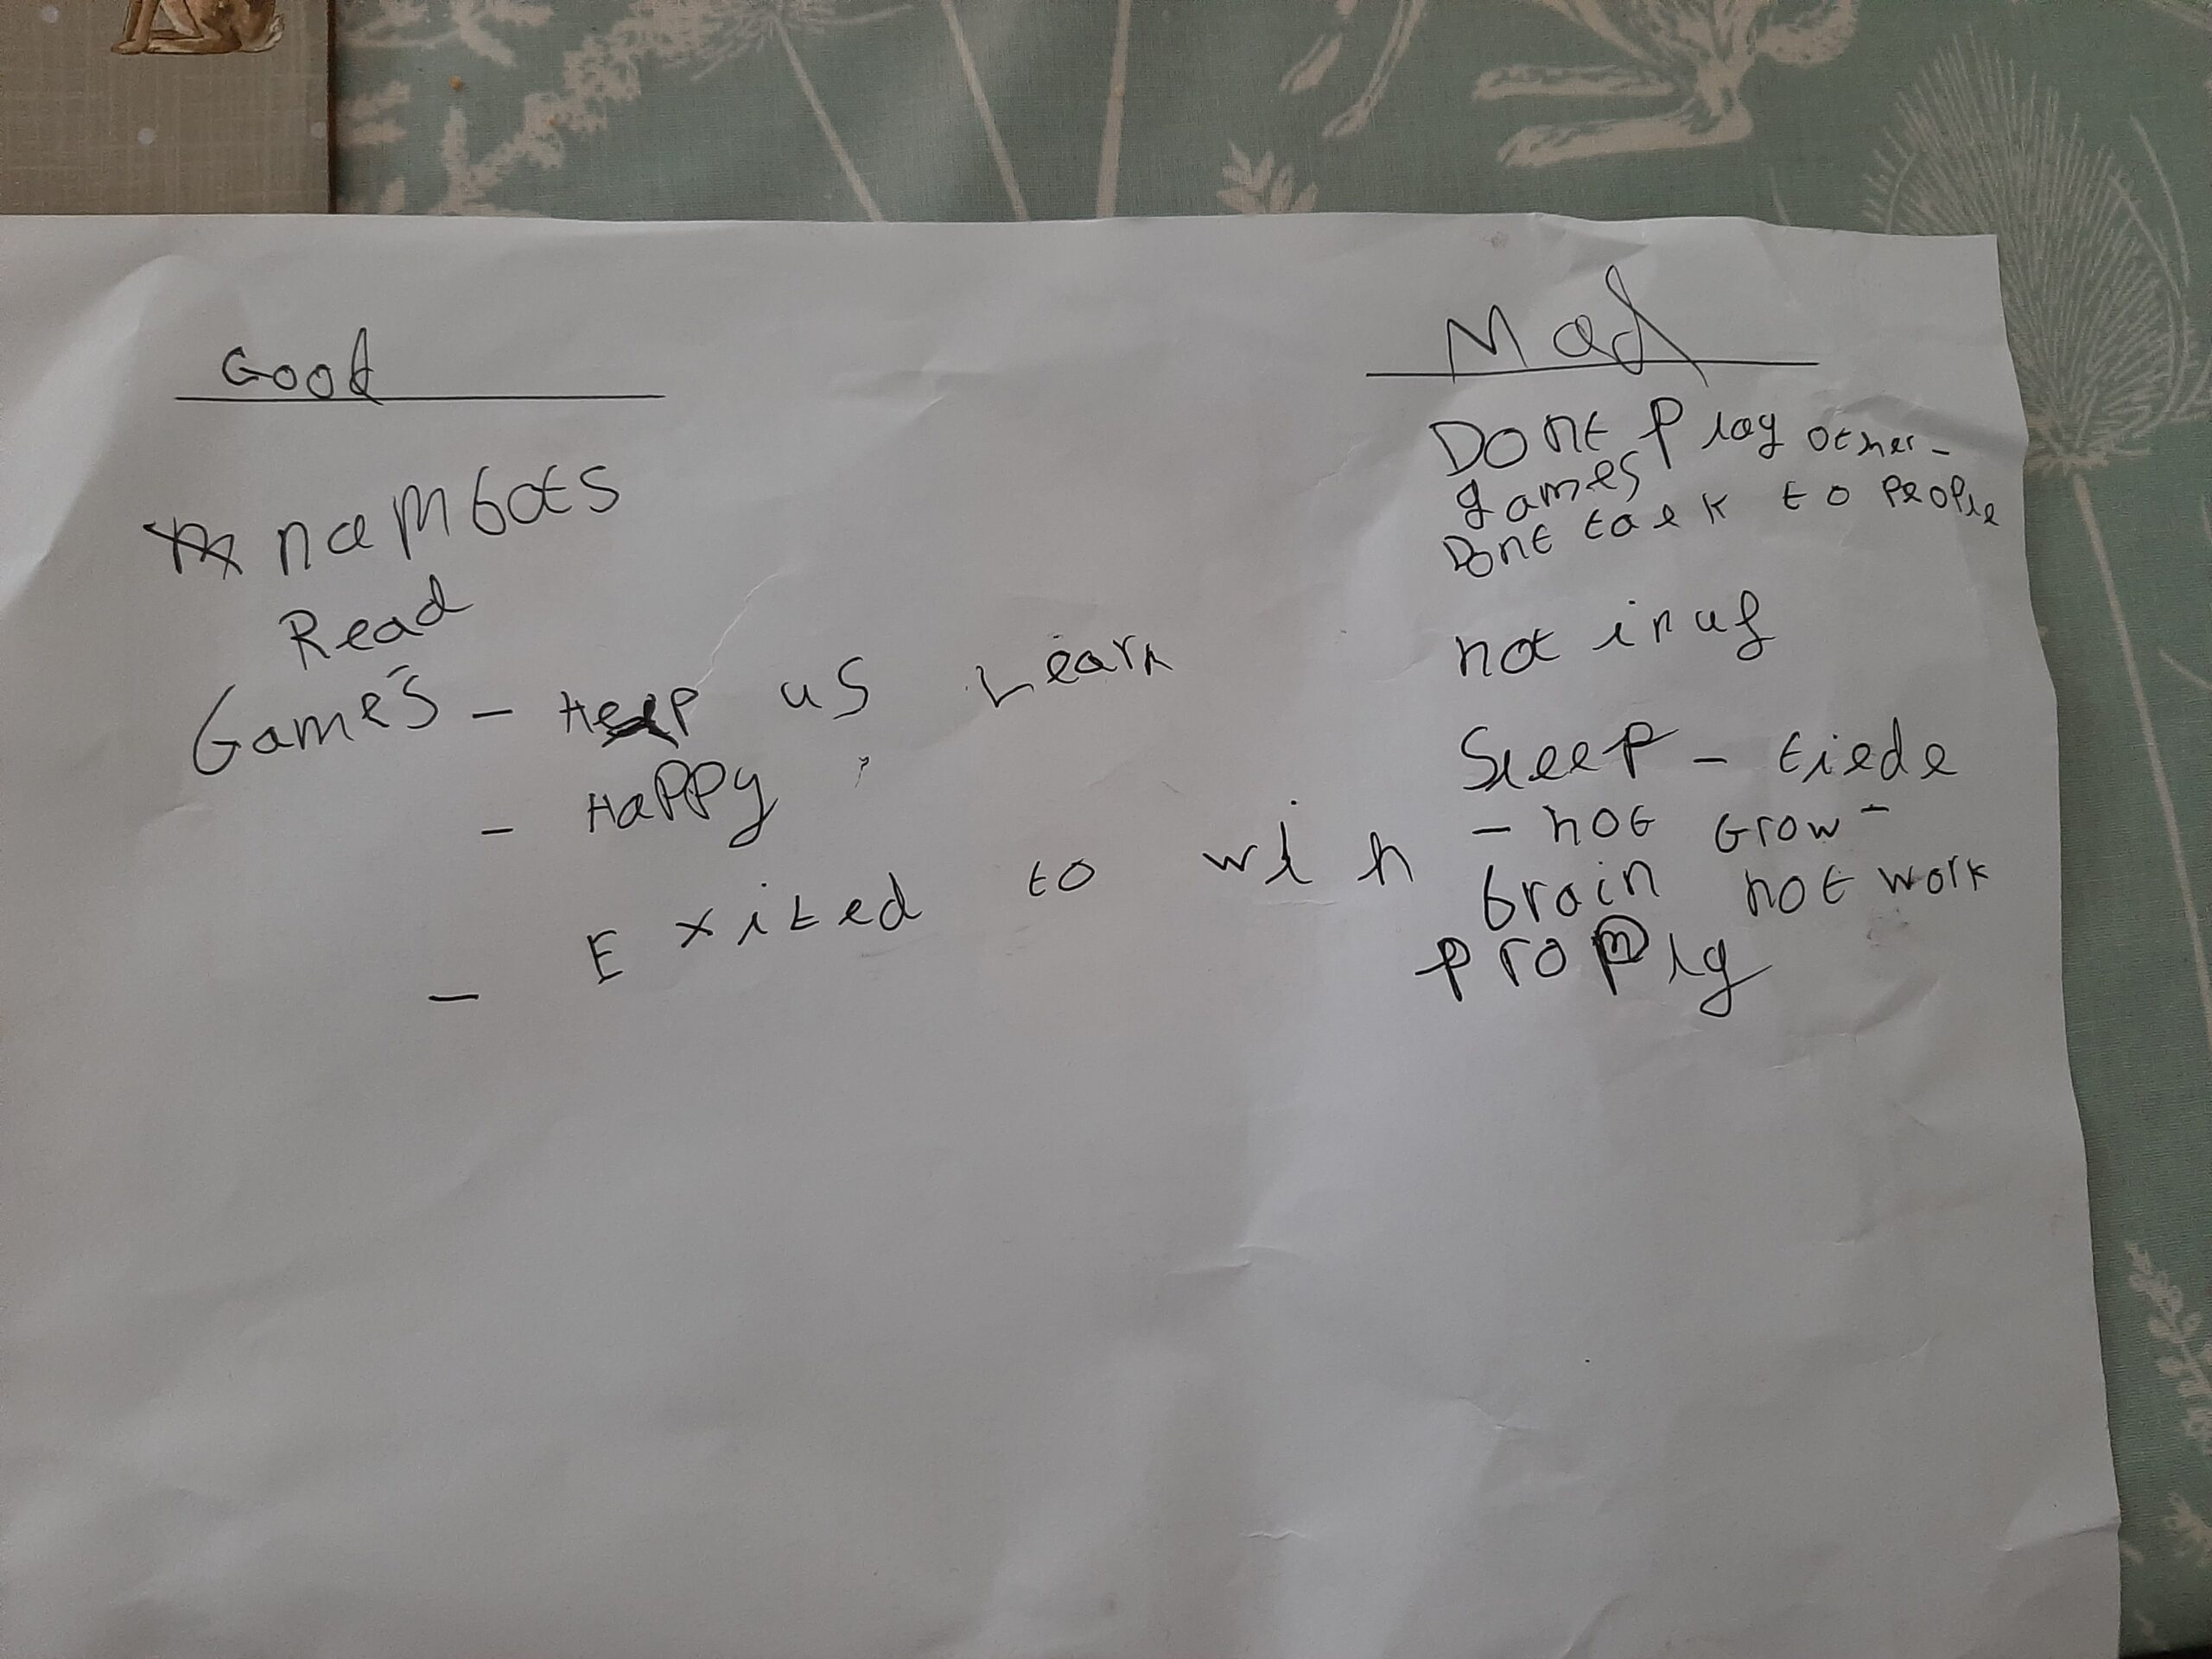 Good
nambots
Read
Games - Help us Learn
- Happy
- Exited to win
Mad
Dont Play other -
games
Dont talk to People
not inuf
Sleep - tiede
- not Grow -
brain not work
proply